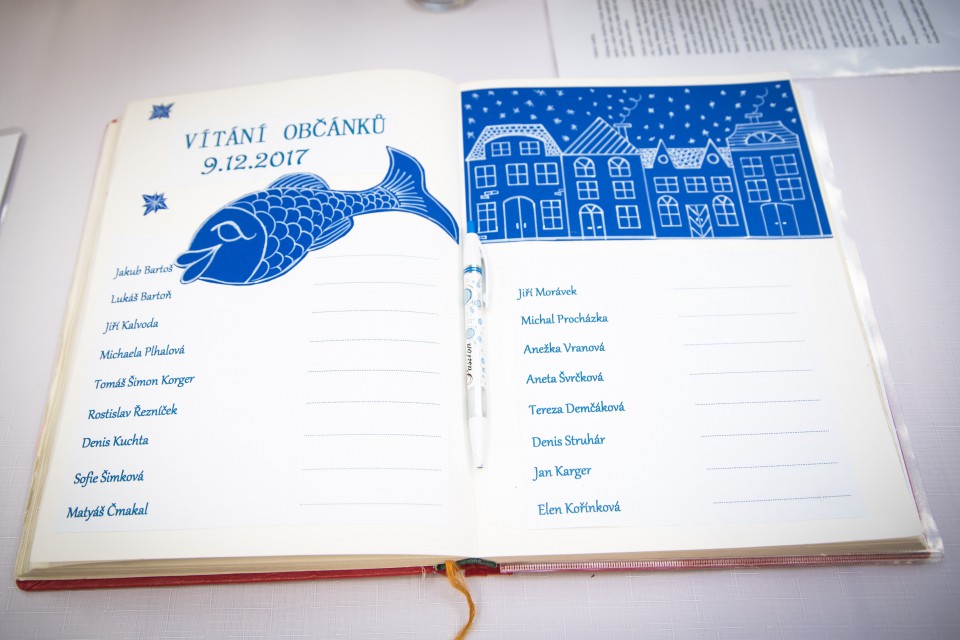 VÍTÁNÍ OBČÁNKŮ
9.12.2017
Jakub Bartoš
Lukáš Bartoň
Jiří Kalvoda
Michaela Plhalová
Tomáš Šimon Korger
Rostislav Řezníček
Denis Kuchta
Sofie Šimková
Matyáš Čmakal
Jiří Morávek
Michal Procházka
Anežka Vranová
Aneta Švrčková
Tereza Demčáková
Denis Struhár
Jan Karger
Elen Kořínková